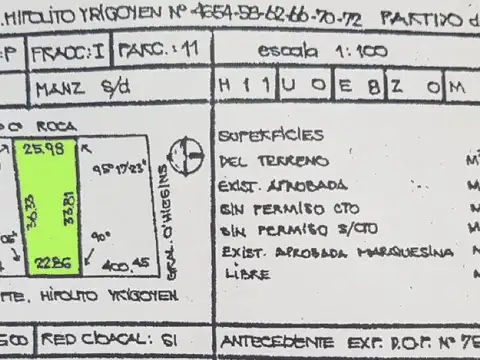 .HIPOLITO YRIGOYEN Nº 4654-58-62-66-70-72 PARTIDO d
:P FRACC:I PARC.:11 escala 1:100
MANZ s/d H 1 1 U 0 E 8 Z 0 M
ROCA
25,98
95º17'23"
36.33
33.81
GRAL. O'HIGGINS
90º
22.86
400.45
TTE. HIPOLITO YRIGOYEN
SUPERFICIES
DEL TERRENO M
EXIST. APROBADA M
SIN PERMISO CTO M
SIN PERMISO S/CTO M
EXIST. APROBADA MARQUESINA
LIBRE
500 RED CLOACAL: SI ANTECEDENTE EXP. D.O.P. Nº 75